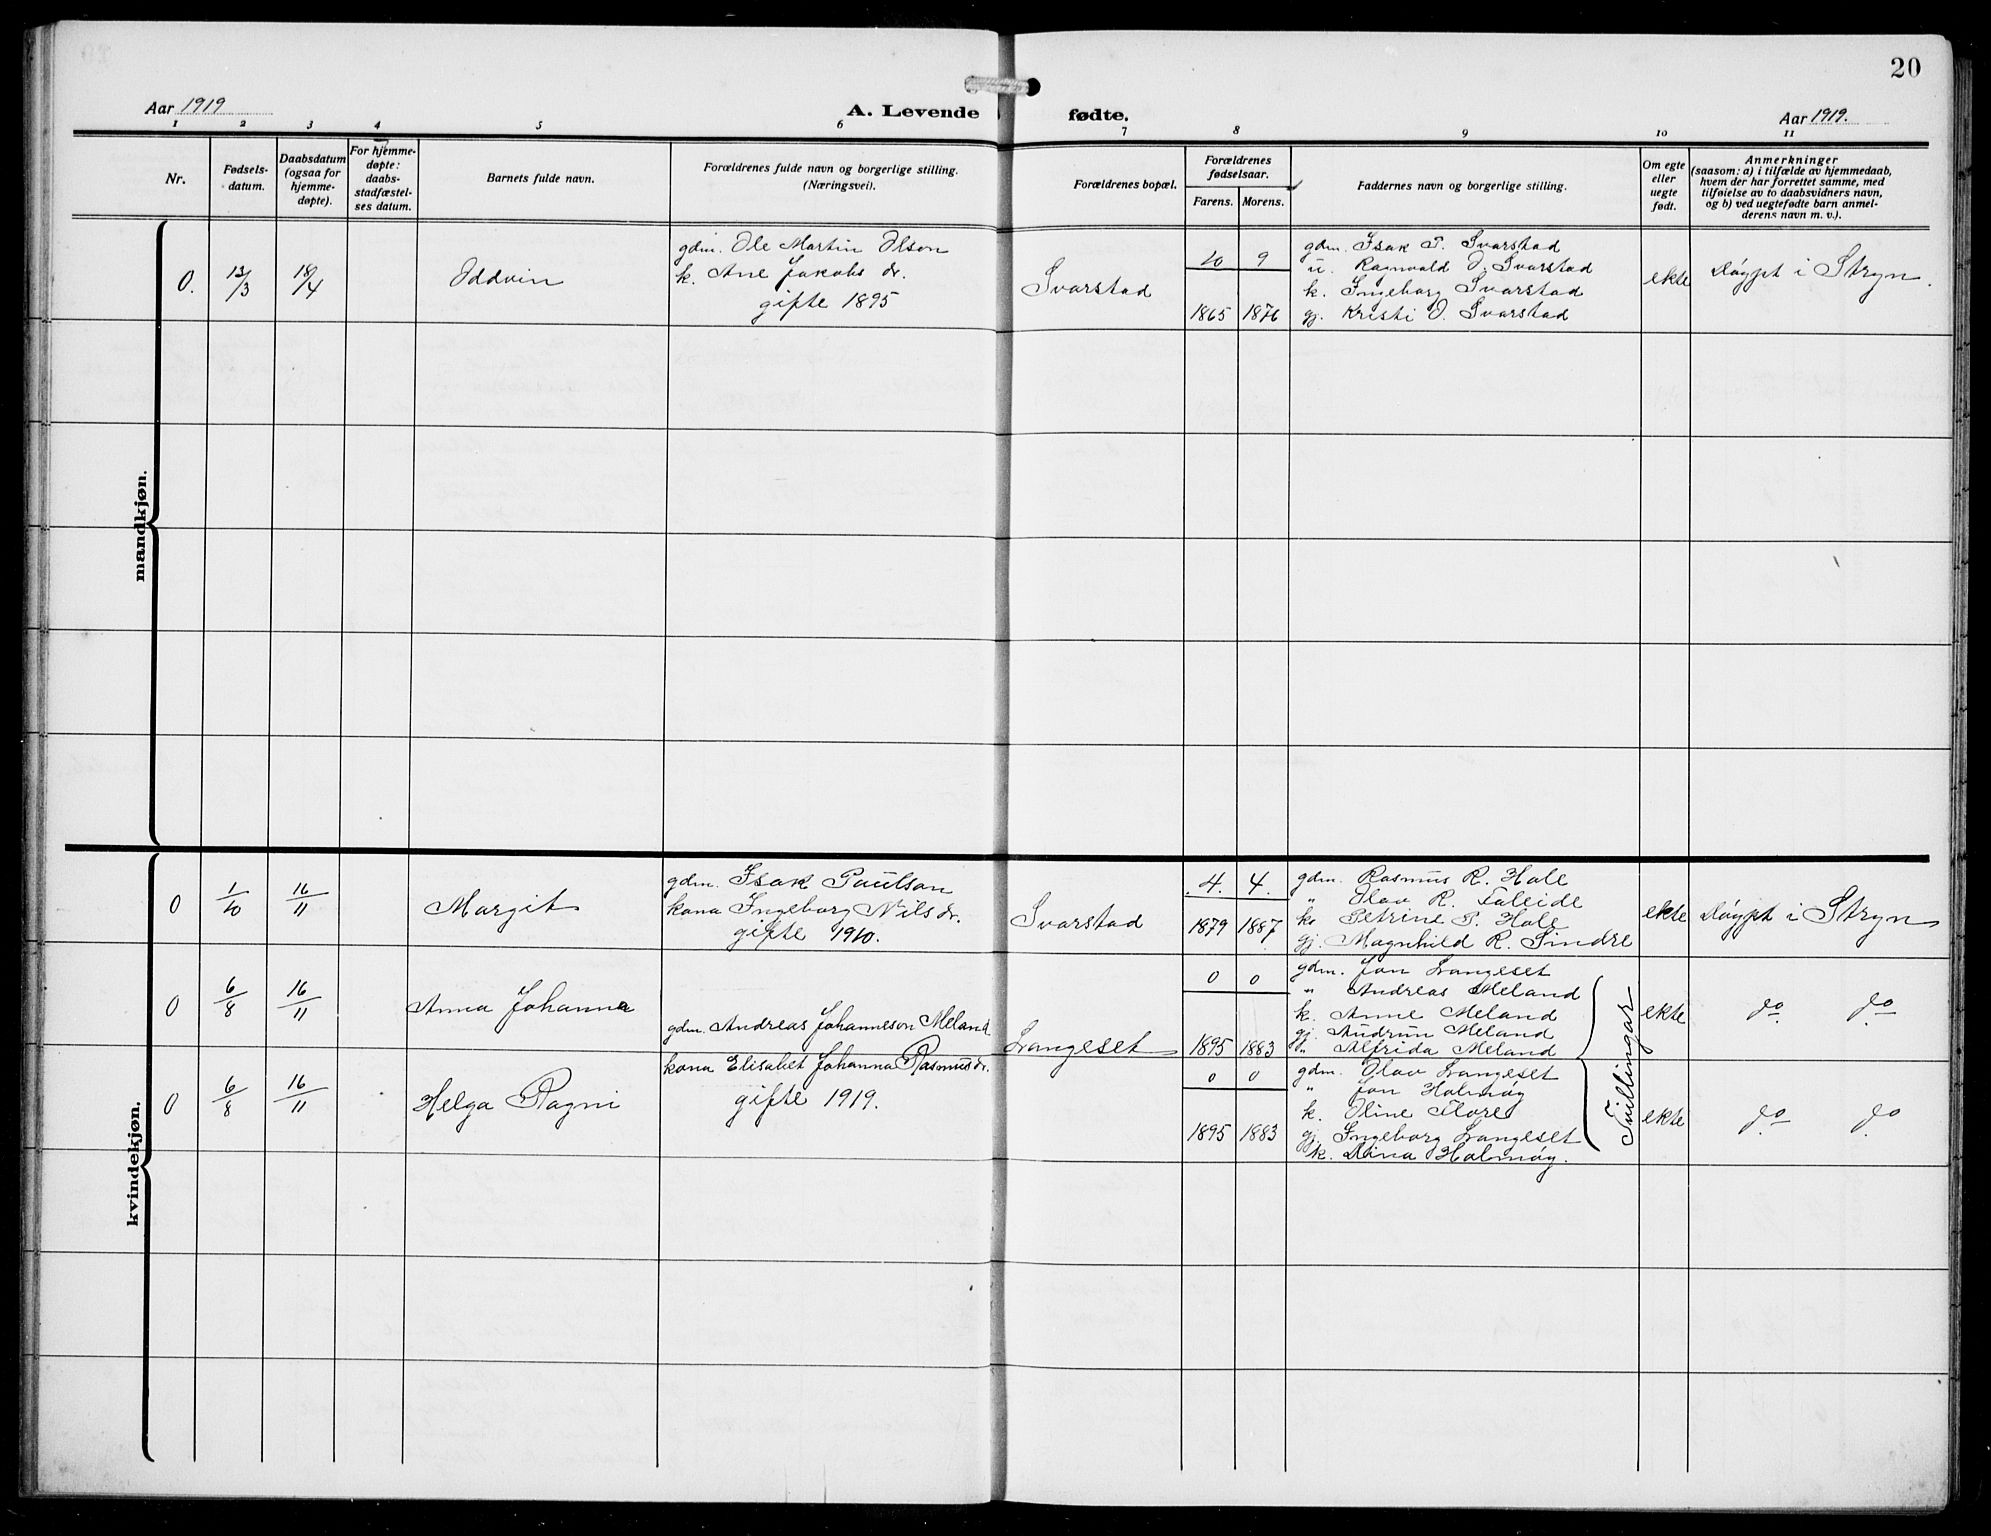 20
Aar 1919
A. Levende fødte.
Aar 1919.
1 2 3 4 5 6 7 8 9 10 11
Nr.
Fødsels-
datum.
Daabsdatum
(ogsaa for
hjemme-
døpte).
For hjemme-
døpte:
daabs-
stadfæstel-
ses datum.
Barnets fulde navn.
Forældrenes fulde navn og borgerlige stilling.
(Næringsvei).
Forældrenes bopæl.
Forældrenes
fødselsaar.
Farens. Morens.
Faddernes navn og borgerlige stilling.
Om egte
eller
uegte
født.
Anmerkninger
(saasom: a) i tilfælde av hjemmedaab,
hvem der har forrettet samme, med
tilføielse av to daabsvidners navn,
og b) ved uegtefødte barn anmel-
derens navn m. v.).
mandkjøn.
0. 13/3 18/4
Oddvin
gdm. Ole Martin Olson
k. Ane Jakobs dr.
gifte 1895
Svarstad
10 9
1865 1876
gdm. Isak P. Svarstad
u. Ragnvald O. Svarstad
k. Ingeborg Svarstad
gj. Kristi O. Svarstad
ekte
Døypt i Stryn.
kvindekjøn.
0 1/10 16/11
Margit
gdm. Isak Paulson
kona Ingeborg Nils dr.
gifte 1910.
Svarstad
4. 4.
1879 1887
gdm. Rasmus R. Hole
" Olav R. Faleide
k. Petrine P. Hole
gj. Magnhild R. Sindre
ekte
Døypt i Stryn
0 6/8 16/11
Anna Johanna
gdm. Andreas Johanneson Meland
kona Elisabet Johanna Rasmusdr.
gifte 1919.
Langeset
0 0
1895 1883
gdm. Jon Langeset
" Andreas Meland
k. Anne Meland
gj. Gudrun Meland
" Alfrida Meland
Tvillingar
ekte
do do
0 6/8 16/11
Helga Ragni
0 0
1895 1883
gdm. Olav Langeset
" Jon Holmøy
k. Oline Flore
gj. Ingeborg Langeset
k. Dina Holmøy.
ekte
do do